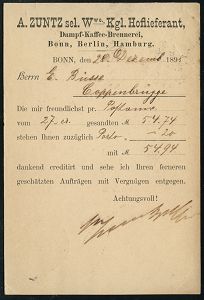 A. ZUNTZ sel. Wwe. Kgl. Hoflieferant,
Dampf-Kaffee-Brennerei,
Bonn, Berlin, Hamburg.
BONN, den 28 Decemb 189
Herrn E.
Coppenbrügge
Die mir freundlichst pr. Postanw
vom 27. cr. gesandten M 54.74
stehen Ihnen zuzüglich Porto — 20
mit M 54.94
dankend creditirt und sehe ich Ihren ferneren
geschätzten Aufträgen mit Vergnügen entgegen.
Achtungsvoll!